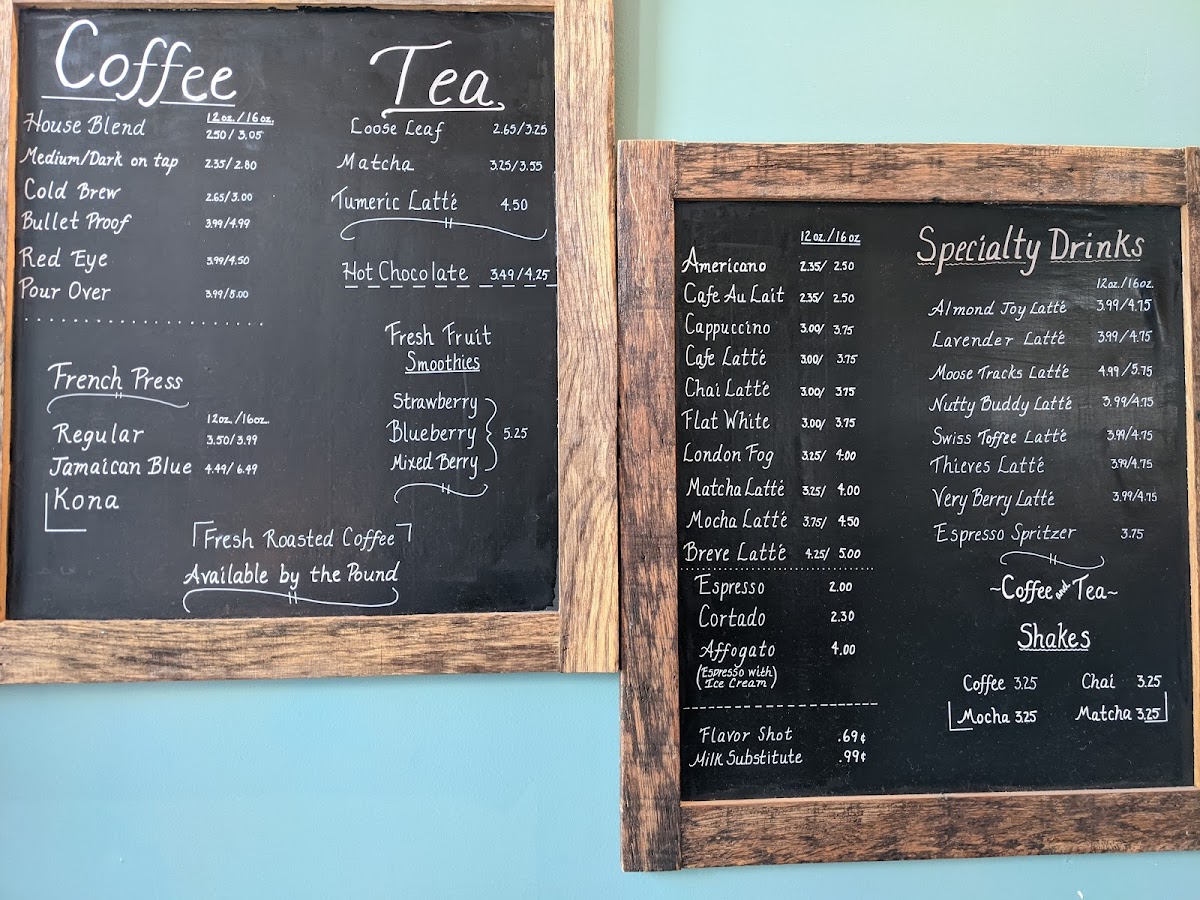 Coffee
12oz./16oz.
House Blend 2.50/3.05
Medium/Dark on tap 2.35/2.80
Cold Brew 2.65/3.00
Bullet Proof 3.99/4.99
Red Eye 3.99/4.50
Pour Over 3.99/5.00
French Press
12oz./16oz.
Regular 3.50/3.99
Jamaican Blue 4.49/6.49
Kona
Tea
Loose Leaf 2.65/3.25
Matcha 3.25/3.55
Tumeric Latté 4.50
Hot Chocolate 3.49/4.25
Fresh Fruit
Smoothies
Strawberry
Blueberry 5.25
Mixed Berry
Fresh Roasted Coffee
Available by the Pound
12oz./16oz
Americano 2.35/2.50
Cafe Au Lait 2.35/2.50
Cappuccino 3.00/3.75
Cafe Latté 3.00/3.75
Chai Latté 3.00/3.75
Flat White 3.00/3.75
London Fog 3.25/4.00
Matcha Latté 3.25/4.00
Mocha Latté 3.75/4.50
Breve Latté 4.25/5.00
Espresso 2.00
Cortado 2.30
Affogato 4.00
(Espresso with
Ice Cream)
Flavor Shot .69¢
Milk Substitute .99¢
Specialty Drinks
12oz./16oz.
Almond Joy Latté 3.99/4.75
Lavender Latté 3.99/4.75
Moose Tracks Latté 4.99/5.75
Nutty Buddy Latté 3.99/4.75
Swiss Toffee Latté 3.99/4.75
Thieves Latté 3.99/4.75
Very Berry Latté 3.99/4.75
Espresso Spritzer 3.75
~Coffee and Tea~
Shakes
Coffee 3.25 Chai 3.25
Mocha 3.25 Matcha 3.25